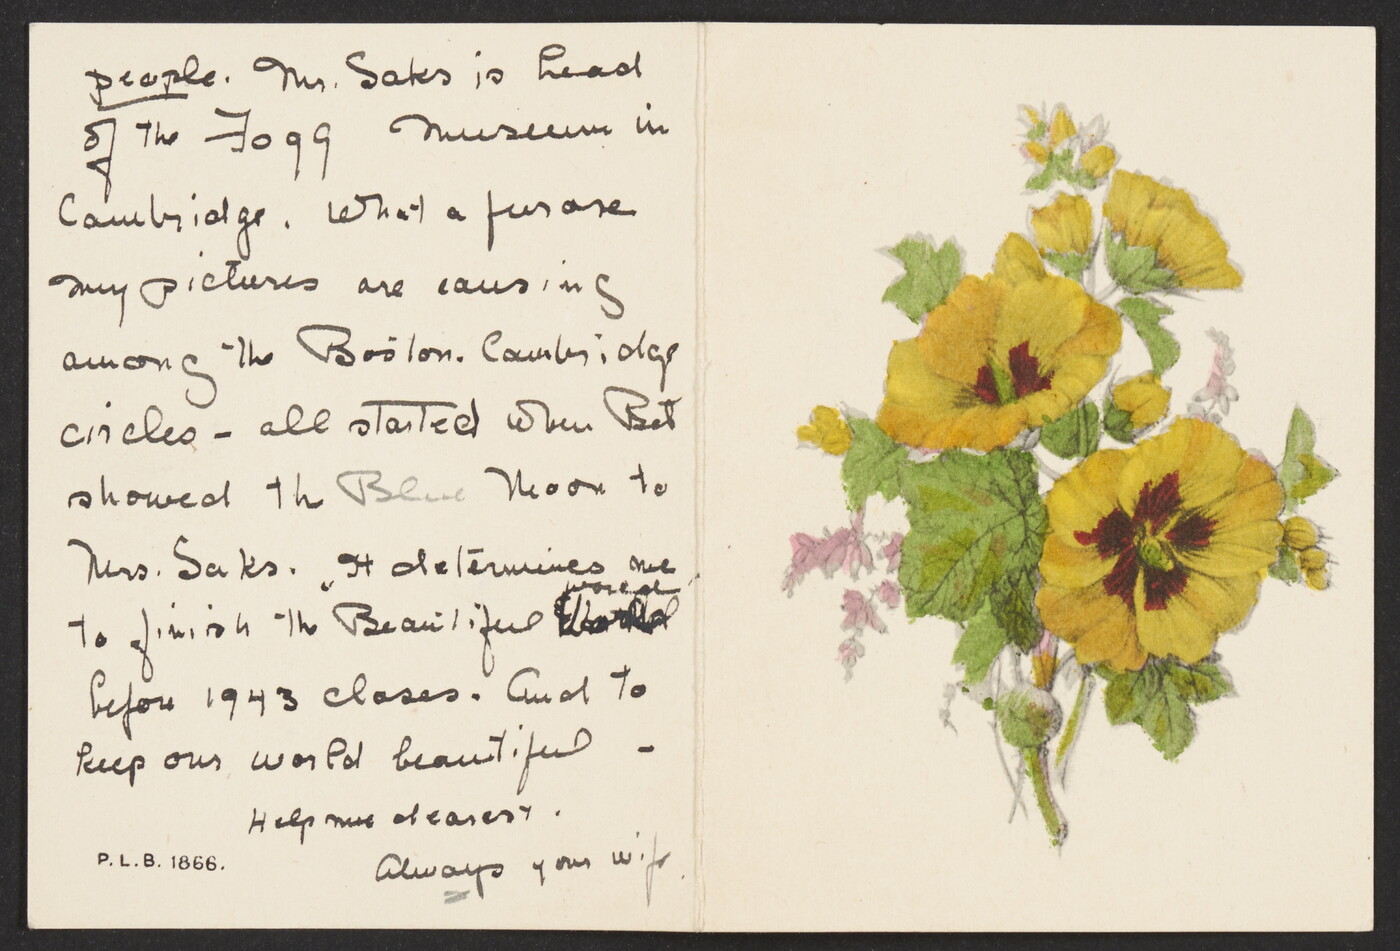 people. Mr. Saks is head
of the Fogg Museum in
Cambridge. What a furore
my pictures are causing
among the Boston. Cambridge
circles - all started when Bet
showed the Blue Moon to
Mrs. Saks. It determines me
to finish the "Beautiful world
before 1943 closes. And to
keep our world beautiful -
Help me dearest.
Always your wife.
P.L.B. 1866.